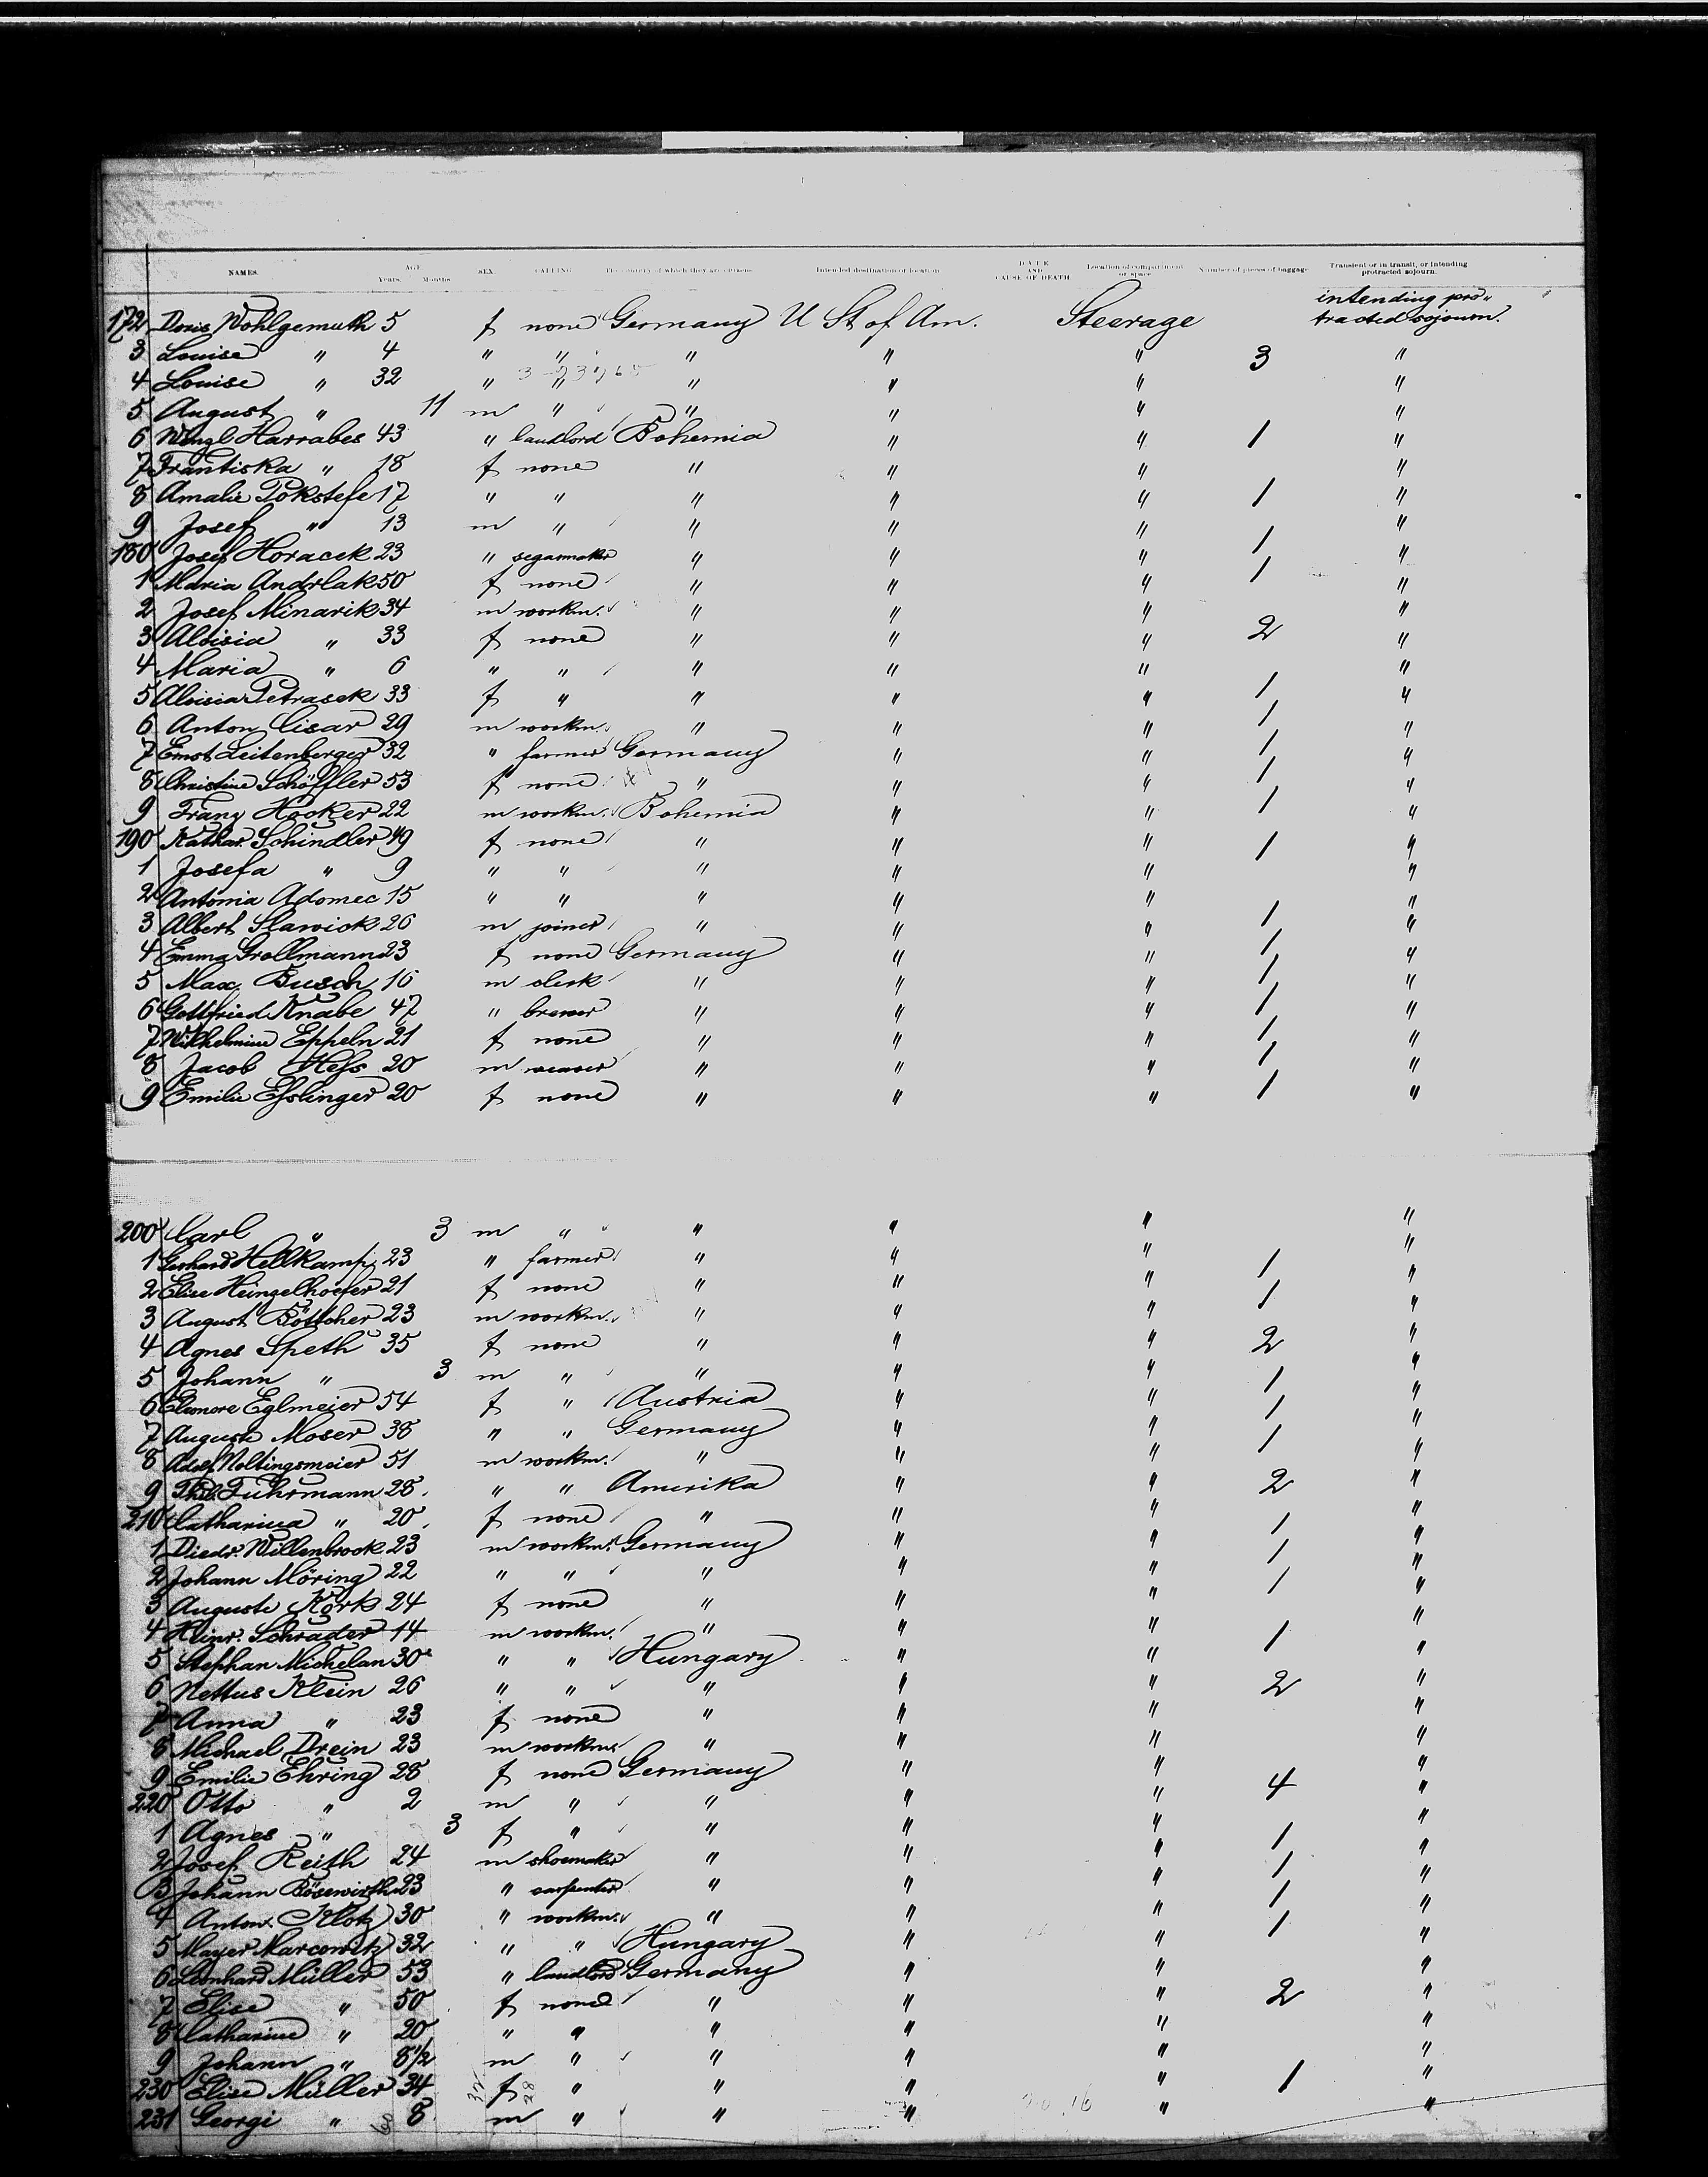 NAMES. AGE Years. Months SEX. CALLING. The country of which they are citizens. Intended destination or location DATE AND CAUSE OF DEATH Location of compartment or space Number of pieces of baggage Transient or in transit, or intending protracted sojourn.
172 Doris Wohlgemuth 5 f none Germany U St of Am. Steerage intending pro„tracted sojourn.
3 Louise " 4 " " " " " 3 "
4 Louise " 32 " " " " " "
5 August " 11 m " " " " "
6 Wenzl Harrabes 43 " landlord Bohemia " " 1 "
7 Frantiska " 18 f none " " " "
8 Amalie Pokstefe 17 " " " " " 1 "
9 Josef " 13 m " " " " "
180 Josef Horacek 23 " segarmaker " " " 1 "
1 Maria Andrlak 50 f none " " " 1 "
2 Josef Minarik 34 m workm. " " " "
3 Aloisia " 33 f none " " " 2 "
4 Maria " 6 " " " " " "
5 Aloisia Petrasek 33 f " " " " 1 "
6 Anton Cisar 29 m workm. " " " 1 "
7 Ernst Leitenberger 32 " farmer Germany " " 1 "
8 Christine Schöffler 53 f none " " " 1 "
9 Franz Hooker 22 m workm. Bohemia " " 1 "
190 Kathar. Schindler 49 f none " " " 1 "
1 Josefa " 9 " " " " " "
2 Antonia Adomec 15 " " " " " "
3 Albert Slawick 26 m joiner " " " 1 "
4 Emma Grollmann 23 f none Germany " " 1 "
5 Max Busch 16 m clerk " " " 1 "
6 Gottfried Knabe 47 " brewer " " " 1 "
7 Wilhelmine Eppeln 21 f none " " " 1 "
8 Jacob Heſs 20 m weaver " " " 1 "
9 Emilie Eſslinger 20 f none " " " 1 "
200 Carl " 3 m " " " " "
1 Gerhard Hellkamp 23 " farmer " " " 1 "
2 Elise Heinzelhoefer 21 f none " " " 1 "
3 August Böttcher 23 m workm. " " " "
4 Agnes Speth 35 f none " " " 2 "
5 Johann " 3 m " " " " "
6 Eleonore Eglmeier 54 f " Austria " " 1 "
7 Auguste Moser 38 " " Germany " " 1 "
8 Adolf Noltingsmeier 51 m workm. " " " 1 "
9 Phil. Fuhrmann 28 " " Amerika " " 2 "
210 Catharina " 20 f none " " " "
1 Diedr. Willenbrock 23 m workm. Germany " " 1 "
2 Johann Möring 22 " " " " " 1 "
3 Auguste Kork 24 f none " " " 1 "
4 Heinr. Schrader 14 m workm. " " " "
5 Stephan Michelan 30 " " Hungary " " 1 "
6 Nettus Klein 26 " " " " " 2 "
7 Anna " 23 f none " " " "
8 Michael Drein 23 m workm. " " " "
9 Emilie Ehring 28 f none Germany " " "
220 Otto " 2 m " " " " 4 "
1 Agnes " 3 f " " " " "
2 Josef Reith 24 m shoemaker " " " 1 "
3 Johann Bösewirth 23 " carpenter " " " 1 "
4 Anton Klotz 30 " workm. " " " 1 "
5 Mayer Marcowitz 32 " " Hungary " " 1 "
6 Leonhard Müller 53 " landlord Germany " " "
7 Elise " 50 f none " " " 2 "
8 Catharine " 20 " " " " " "
9 Johann " 8 1/2 m " " " " "
230 Elise Müller 34 f " " " " 1 "
231 Georgi " 8 m " " " " "